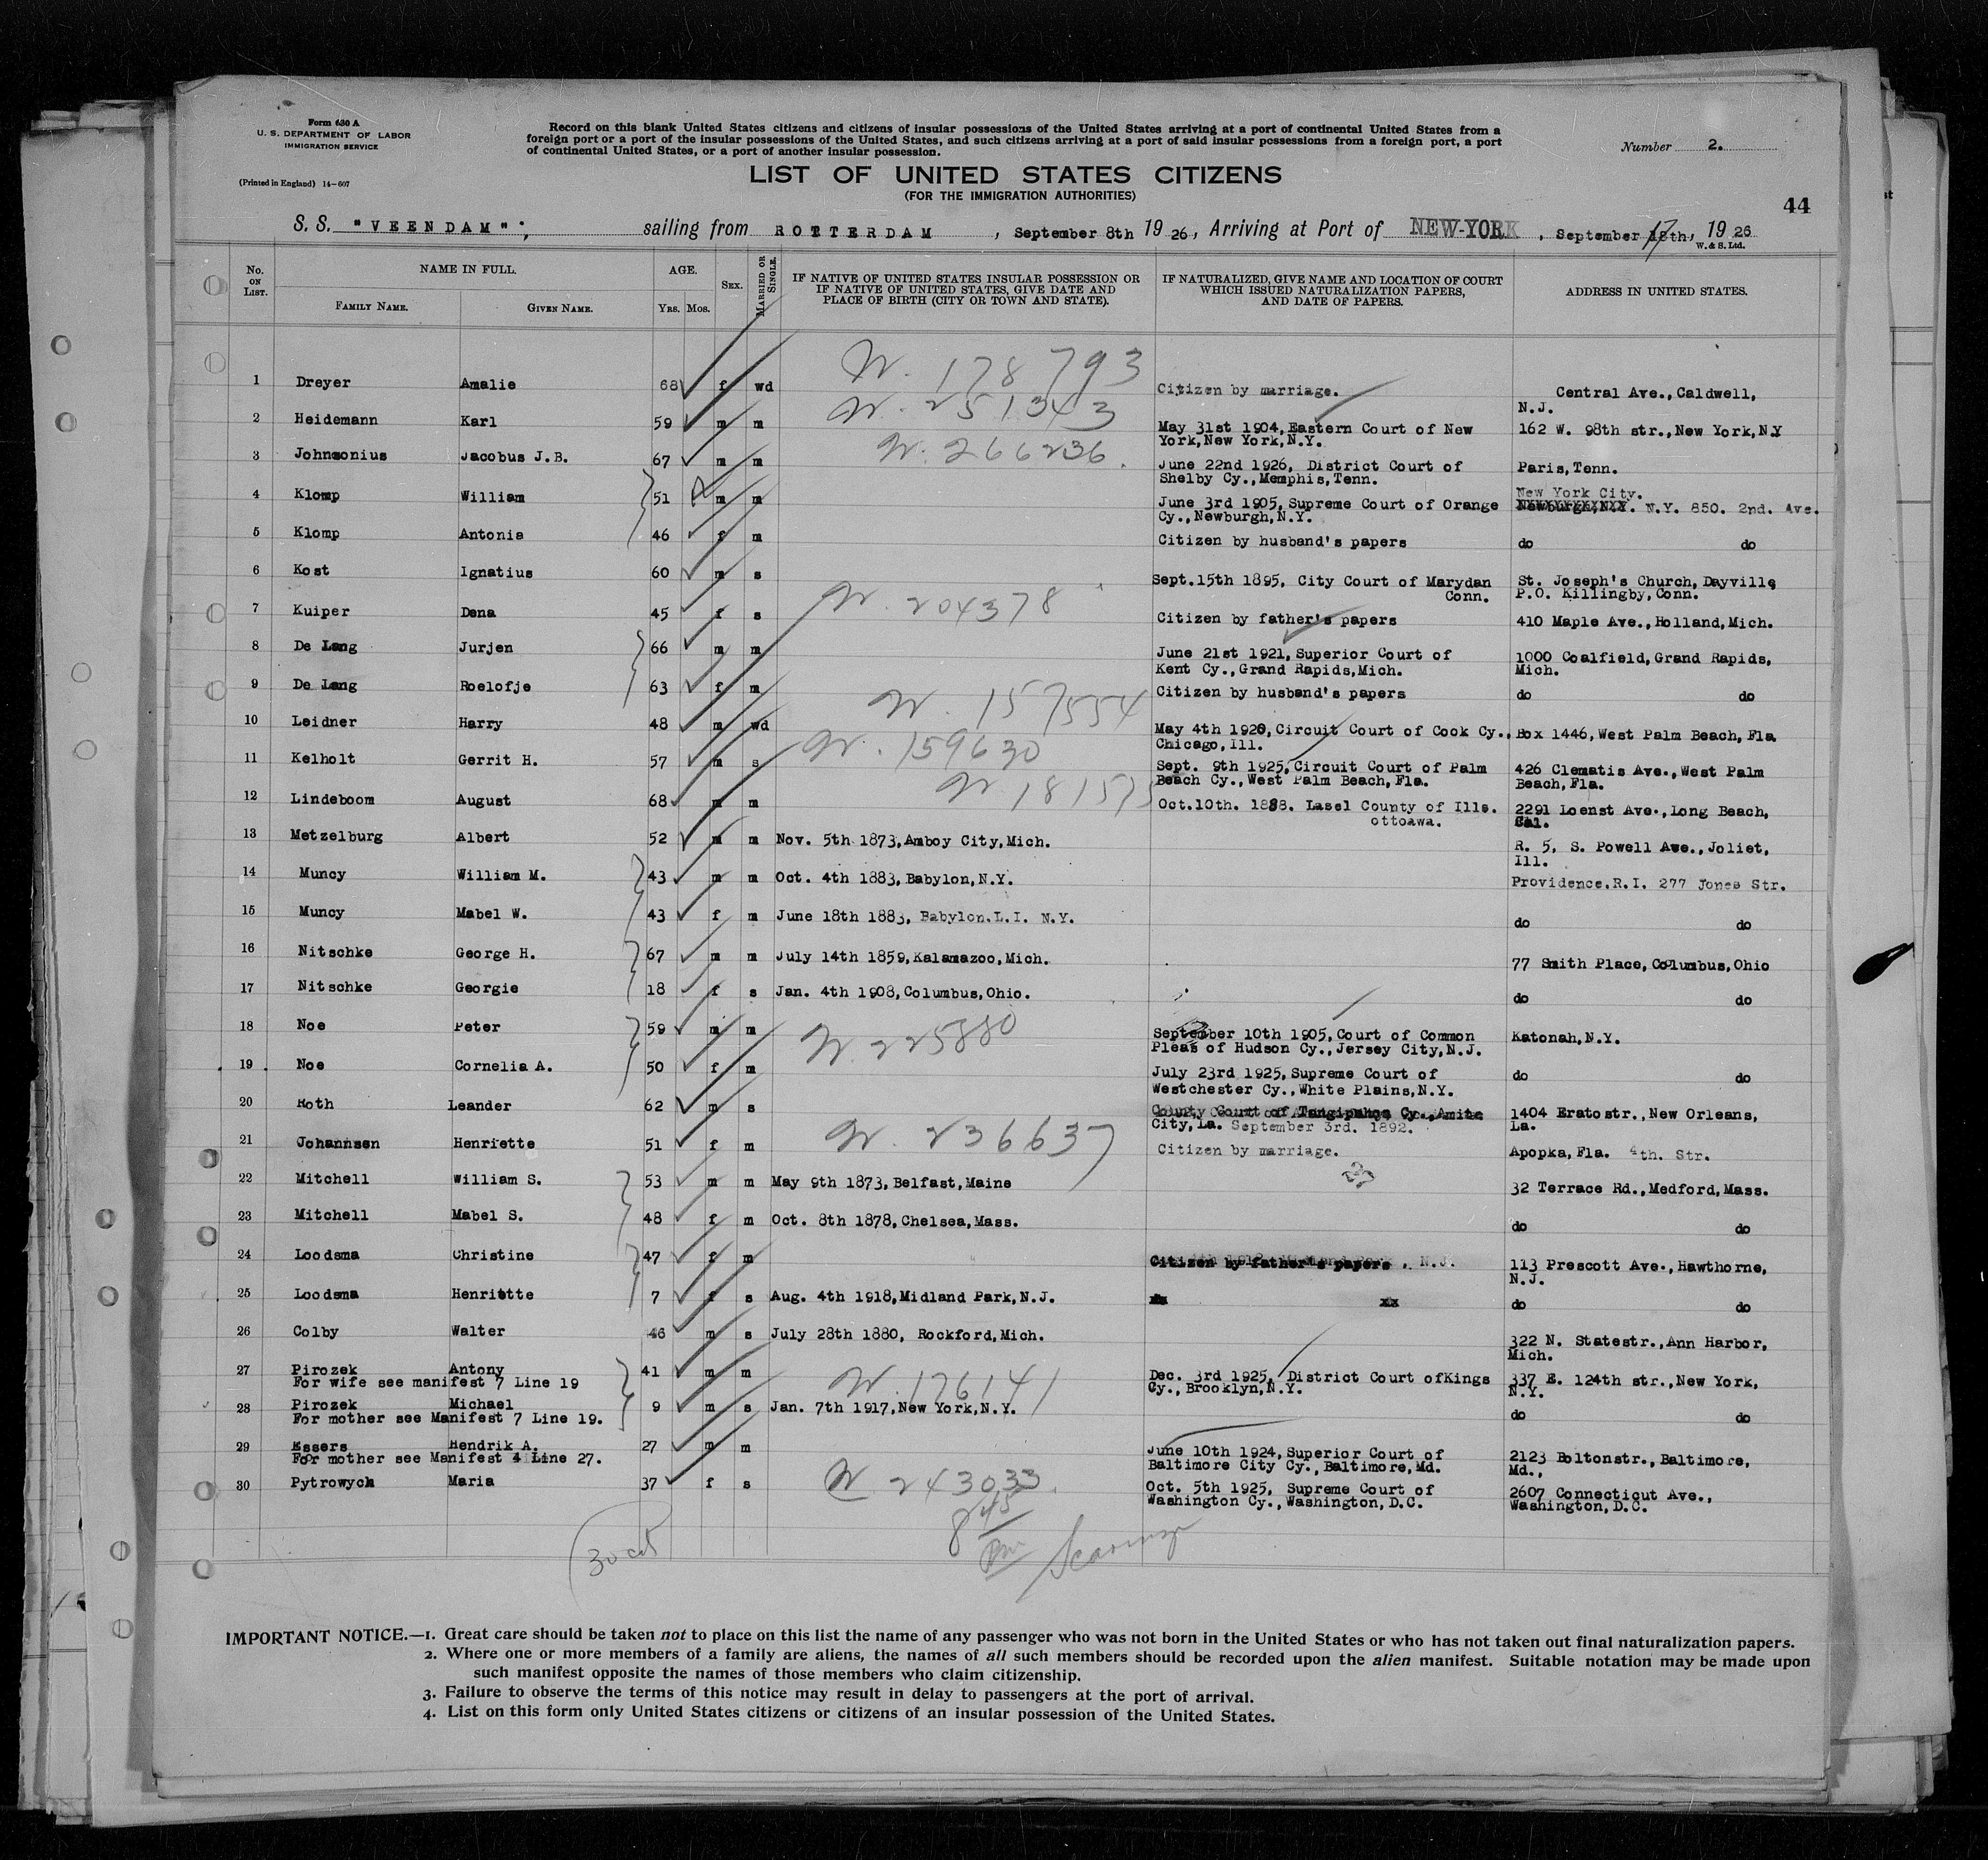 Form 630 A
U. S. DEPARTMENT OF LABOR
IMMIGRATION SERVICE
(Printed in England) 14-607
Record on this blank United States citizens and citizens of insular possessions of the United States arriving at a port of continental United States from a
foreign port or a port of the insular possessions of the United States, and such citizens arriving at a port of said insular possessions from a foreign port, a port
of continental United States, or a port of another insular possession.
Number 2.
LIST OF UNITED STATES CITIZENS
(FOR THE IMMIGRATION AUTHORITIES)
44
S. S. "VEENDAM"; sailing from ROTTERDAM, September 8th 1926, Arriving at Port of NEW-YORK, September 17, 1926
W. & S. Ltd.
No. ON LIST. NAME IN FULL. AGE. SEX. MARRIED OR SINGLE. IF NATIVE OF UNITED STATES INSULAR POSSESSION OR IF NATIVE OF UNITED STATES, GIVE DATE AND PLACE OF BIRTH (CITY OR TOWN AND STATE). IF NATURALIZED, GIVE NAME AND LOCATION OF COURT WHICH ISSUED NATURALIZATION PAPERS, AND DATE OF PAPERS. ADDRESS IN UNITED STATES.
FAMILY NAME. GIVEN NAME. YRS. MOS.
1 Dreyer Amalie 68 f wd N. 178793 Citizen by marriage. Central Ave., Caldwell,
N.J.
2 Heidemann Karl 59 m m N. 251343 May 31st 1904, Eastern Court of New 162 W. 98th str., New York, N.Y
York, New York, N.Y.
3 Johnsonius Jacobus J.B. 67 m m N. 266236. June 22nd 1926, District Court of Paris, Tenn.
Shelby Cy., Memphis, Tenn.
4 Klomp William 51 m m June 3rd 1905, Supreme Court of Orange New York City.
Cy., Newburgh, N.Y. N.Y. 850. 2nd. Ave.
5 Klomp Antonia 46 f m Citizen by husband's papers do do
6 Kost Ignatius 60 m s Sept. 15th 1895, City Court of Marydan St. Joseph's Church, Dayville
Conn. P.O. Killingby, Conn.
7 Kuiper Dena 45 f s N. 204378 Citizen by father's papers 410 Maple Ave., Holland, Mich.
8 De Lang Jurjen 66 m m June 21st 1921, Superior Court of 1000 Coalfield, Grand Rapids,
Kent Cy., Grand Rapids, Mich. Mich.
9 De Lang Roelofje 63 f m Citizen by husband's papers do do
10 Leidner Harry 48 m wd N. 157554 May 4th 1920, Circuit Court of Cook Cy., Box 1446, West Palm Beach, Fla
Chicago, Ill.
11 Kelholt Gerrit H. 57 m s N. 159630 Sept. 9th 1925, Circuit Court of Palm 426 Clematis Ave., West Palm
Beach Cy., West Palm Beach, Fla. Beach, Fla.
12 Lindeboom August 68 m m Oct. 10th. 1888. Lasel County of Ills. 2291 Loenst Ave., Long Beach,
ottoawa. Cal.
13 Metzelburg Albert 52 m m Nov. 5th 1873, Amboy City, Mich. R. 5, S. Powell Ave., Joliet,
Ill.
14 Muncy William M. 43 m m Oct. 4th 1883, Babylon, N.Y. Providence. R.I. 277 Jones Str.
15 Muncy Mabel W. 43 f m June 18th 1883, Babylon. L.I. N.Y. do do
16 Nitschke George H. 67 m m July 14th 1859, Kalamazoo, Mich. 77 Smith Place, Columbus, Ohio
17 Nitschke Georgie 18 f s Jan. 4th 1908, Columbus, Ohio. do do
18 Noe Peter 59 m m N. 225880 September 10th 1905, Court of Common Katonah, N.Y.
Pleas of Hudson Cy., Jersey City, N.J.
19 Noe Cornelia A. 50 f m July 23rd 1925, Supreme Court of do do
Westchester Cy., White Plains, N.Y.
20 Roth Leander 62 m s County Court of Tangipahoa Cy., Amite 1404 Eratostr., New Orleans,
City, La. September 3rd. 1892. La.
21 Johannsen Henriette 51 f m N. 236637 Citizen by marriage. Apopka, Fla. 4th. Str.
22 Mitchell William S. 53 m m May 9th 1873, Belfast, Maine 32 Terrace Rd., Medford, Mass.
23 Mitchell Mabel S. 48 f m Oct. 8th 1878, Chelsea, Mass. do do
24 Loodsma Christine 47 f m Citizen by father's papers. N.J. 113 Prescott Ave., Hawthorne,
N.J.
25 Loodsma Henriette 7 f s Aug. 4th 1918, Midland Park, N.J. xx xx do do
26 Colby Walter 46 m s July 28th 1880, Rockford, Mich. 322 N. Statestr., Ann Harbor,
Mich.
27 Pirozek Antony 41 m m N. 176141 Dec. 3rd 1925, District Court ofKings 337 E. 124th str., New York,
For wife see manifest 7 Line 19 Cy., Brooklyn, N.Y. N.Y.
28 Pirozek Michael 9 m s Jan. 7th 1917, New York, N.Y. do do
For mother see Manifest 7 Line 19.
29 Essers Hendrik A. 27 m m June 10th 1924, Superior Court of 2123 Boltonstr., Baltimore,
For mother see Manifest 4 Line 27. Baltimore City Cy., Baltimore, Md. Md.,
30 Pytrowych Maria 37 f s N 243033. Oct. 5th 1925, Supreme Court of 2607 Connecticut Ave.,
Washington Cy., Washington, D.C. Washington, D.C.
845
IMPORTANT NOTICE.—1. Great care should be taken not to place on this list the name of any passenger who was not born in the United States or who has not taken out final naturalization papers.
2. Where one or more members of a family are aliens, the names of all such members should be recorded upon the alien manifest. Suitable notation may be made upon
such manifest opposite the names of those members who claim citizenship.
3. Failure to observe the terms of this notice may result in delay to passengers at the port of arrival.
4. List on this form only United States citizens or citizens of an insular possession of the United States.